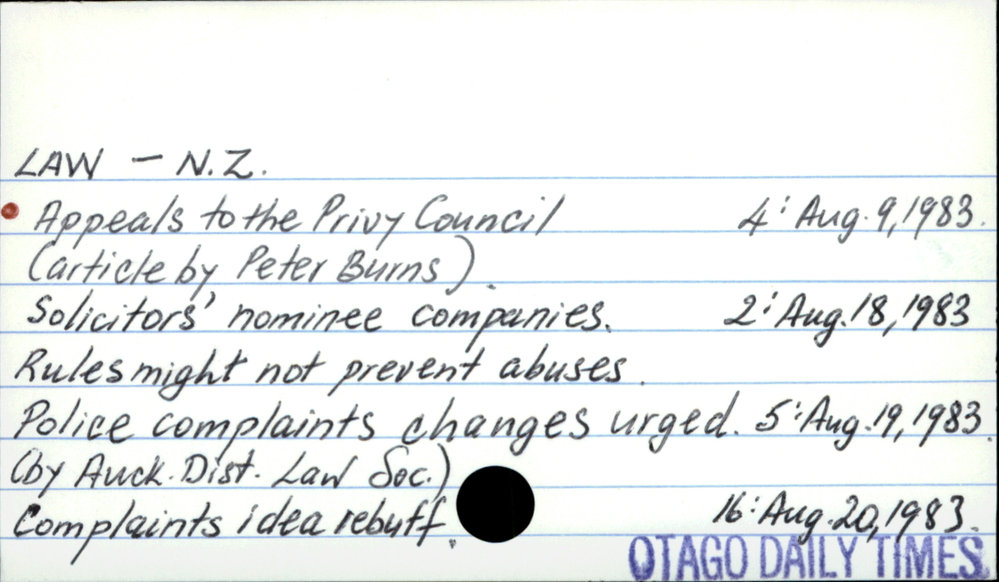 LAW – N.Z.
Appeals to the Privy Council 4: Aug. 9, 1983.
(article by Peter Burns).
Solicitors' nominee companies. 2: Aug. 18, 1983
Rules might not prevent abuses.
Police complaints changes urged. 5: Aug. 19, 1983.
(by Auck. Dist. Law Soc.)
Complaints idea rebuff. 16: Aug. 20, 1983.
OTAGO DAILY TIMES